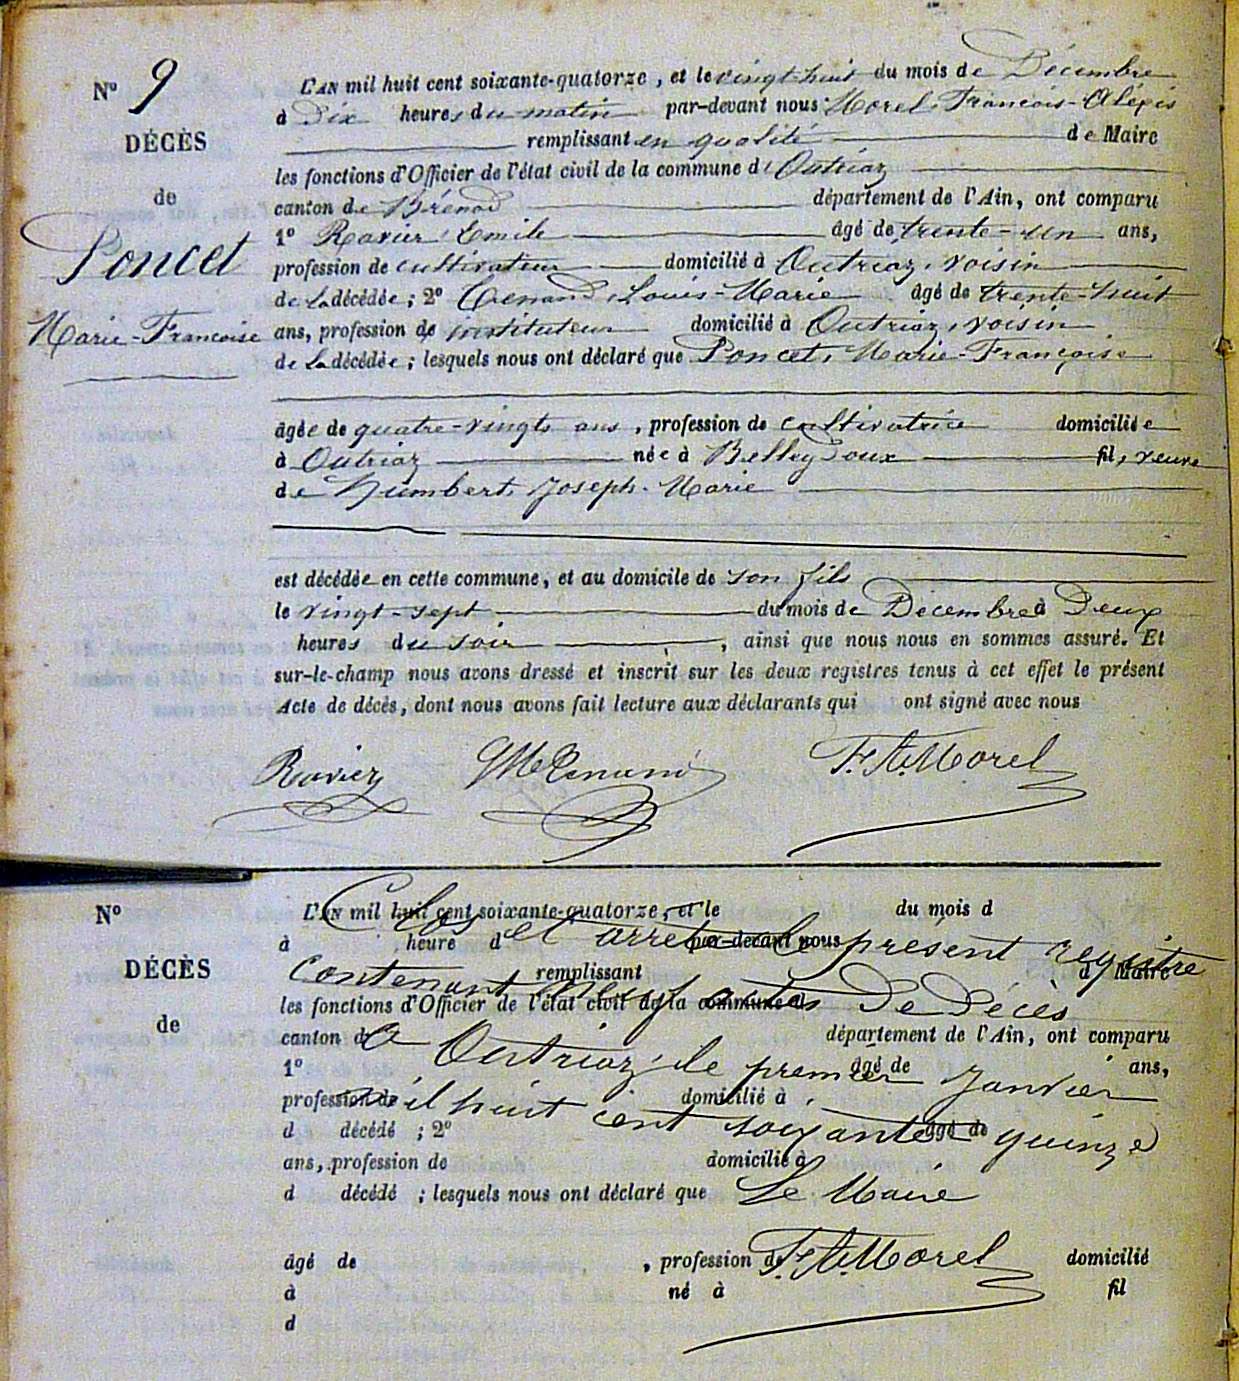 N° 9
DÉCÈS
de
Poncet
Marie-Francoise
L'AN mil huit cent soixante-quatorze, et le vingt-huit du mois de Décembre
à Dix heures du matin par-devant nous Morel, Francois-Alépis
remplissant en qualité de Maire
les fonctions d'Officier de l'état civil de la commune d'Outriaz
canton de Brénod département de l'Ain, ont comparu
1° Ravier Emile âgé de trente-un ans,
profession de cultivateur domicilié à Outriaz, voisin
de la décédée ; 2° Louis-Marie âgé de trente-huit
ans, profession de instituteur domicilié à Outriaz, voisin
de la décédée ; lesquels nous ont déclaré que Poncet, Marie-Françoise
âgée de quatre-vingts ans, profession de cultivatrice domiciliée
à Outriaz née à Belleydoux fil, veuve
de Humbert, Joseph-Marie
est décédée en cette commune, et au domicile de son fils
le vingt-sept du mois de Décembre à Deux
heures du soir, ainsi que nous nous en sommes assuré. Et
sur-le-champ nous avons dressé et inscrit sur les deux registres tenus à cet effet le présent
Acte de décès, dont nous avons fait lecture aux déclarants qui ont signé avec nous
Ravier F. A. Morel
N°
DÉCÈS
de
L'AN mil huit cent soixante-quatorze, et le du mois d
Clos et arrêté le présent registre
à heure d par-devant nous
contenant neuf actes de Décès
remplissant d Maire
les fonctions d'Officier de l'état civil de la commune d
canton d département de l'Ain, ont comparu
A Outriaz, le premier Janvier
1° âgé de ans,
profession de domicilié à
mil huit cent soixante quinze
d décédé ; 2° âgé de
ans, profession de domicilié à
d décédé ; lesquels nous ont déclaré que
Le Maire
F. A. Morel
âgé de , profession de domicilié
à né à fil
d